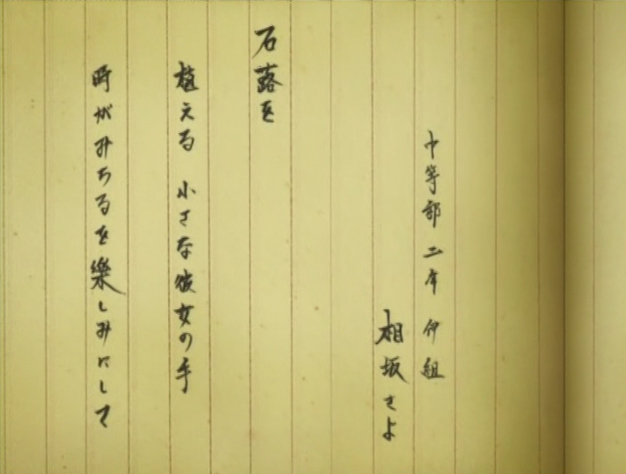 中等部 二年 伊組
相坂さよ
石蕗を
植える 小さな彼女の手
時がみちるを樂しみにして